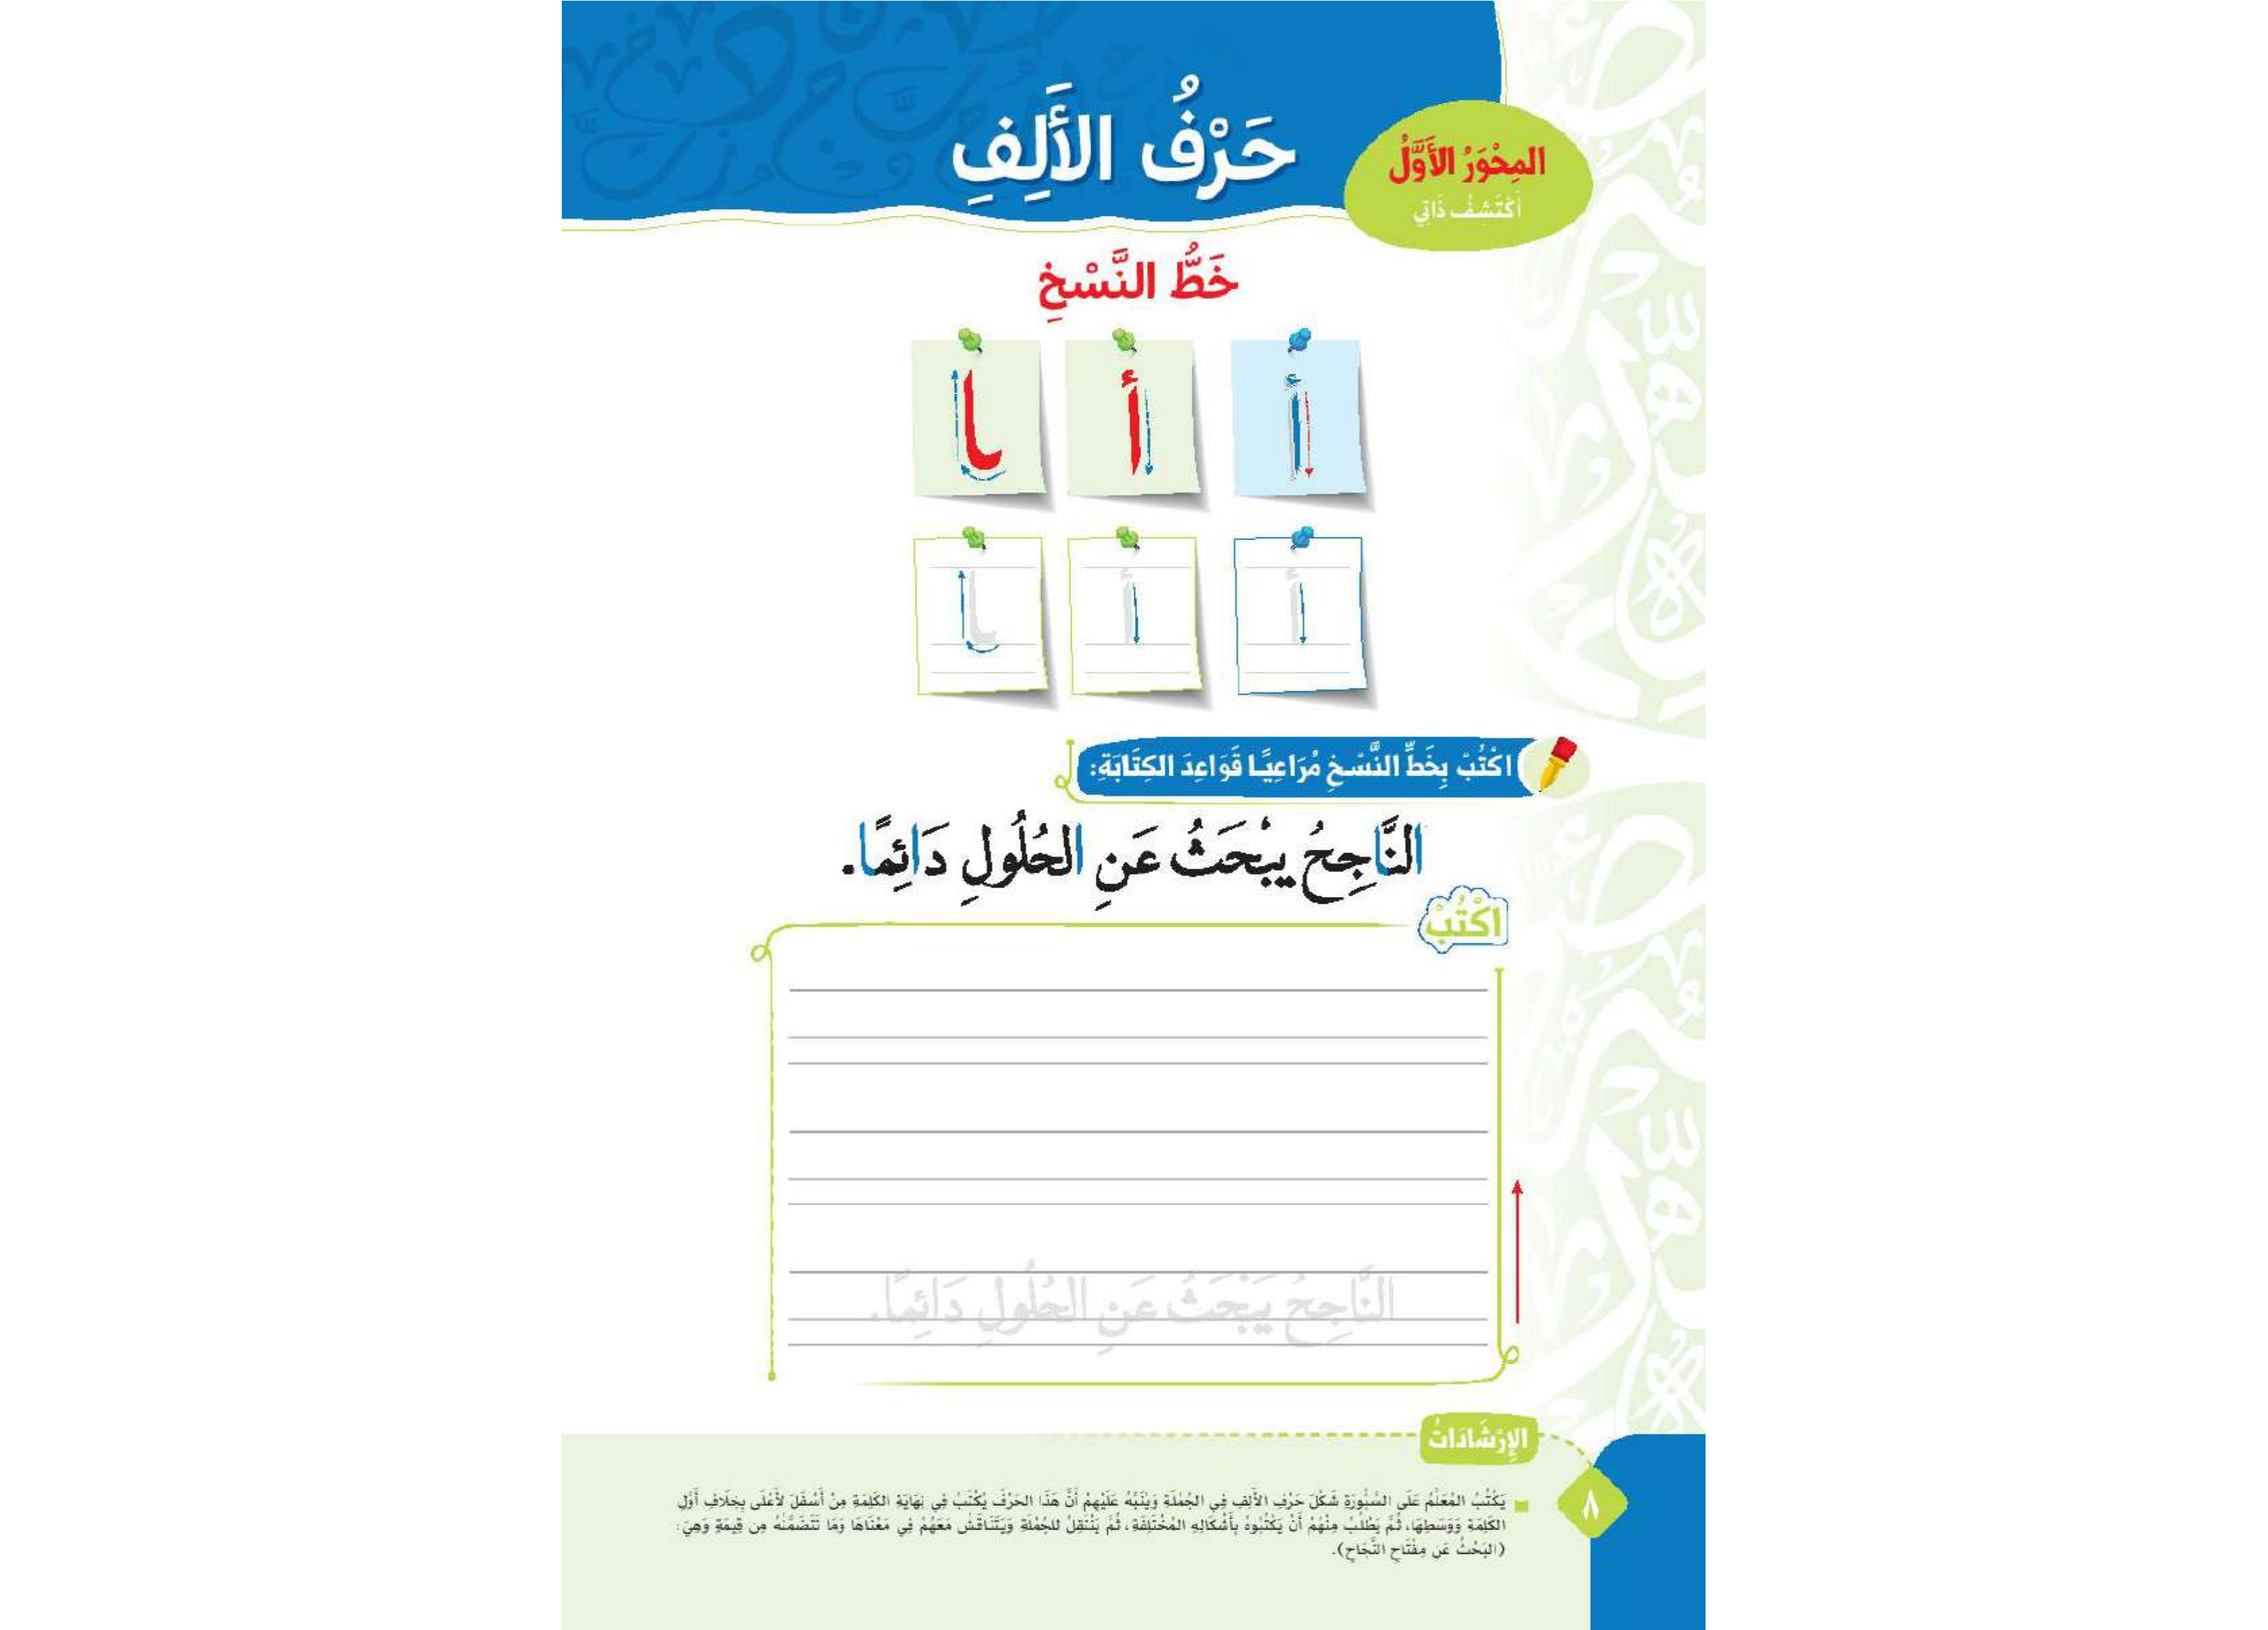 حَرْفُ الأَلِفِ
المِحْوَرُ الأَوَّلُ
أَكْتَشِفُ ذَاتِي
خَطُّ النَّسْخِ
أ أ ـا
أ أ ـا
اكْتُبْ بِخَطِّ النَّسْخِ مُرَاعِيًا قَوَاعِدَ الكِتَابَةِ:
النَّاجِحُ يَبْحَثُ عَنِ الحُلُولِ دَائِمًا.
اكْتُبْ
النَّاجِحُ يَبْحَثُ عَنِ الحُلُولِ دَائِمًا.
الإِرْشَادَاتُ
يَكْتُبُ المُعَلِّمُ عَلَى السَّبُّورَةِ شَكْلَ حَرْفِ الأَلِفِ فِي الجُمْلَةِ وَيُنَبِّهُ عَلَيْهِمْ أَنَّ هَذَا الحَرْفَ يُكْتَبُ فِي نِهَايَةِ الكَلِمَةِ مِنْ أَسْفَلَ لأَعْلَى بِخِلَافِ أَوَّلِ
الكَلِمَةِ وَوَسَطِهَا، ثُمَّ يَطْلُبُ مِنْهُمْ أَنْ يَكْتُبُوهُ بِأَشْكَالِهِ المُخْتَلِفَةِ، ثُمَّ يَنْتَقِلُ للجُمْلَةِ وَيَتَنَاقَشُ مَعَهُمْ فِي مَعْنَاهَا وَمَا تَتَضَمَّنُهُ مِن قِيمَةٍ وَهِيَ:
(البَحْثُ عَن مِفْتَاحِ النَّجَاحِ).
٨